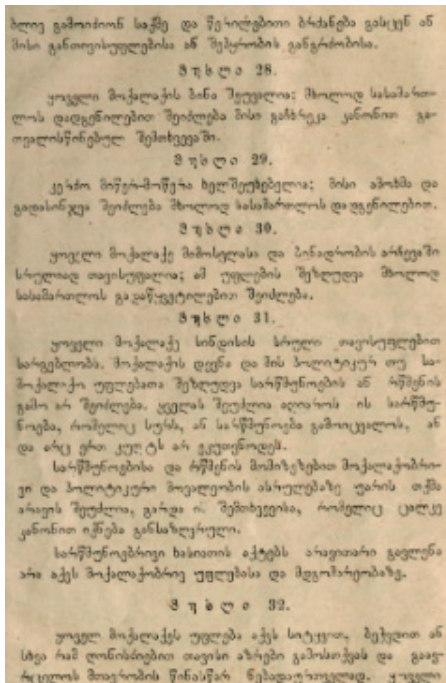 ბლივ გამოიძიონ საქმე და წერილებითი ბრძანება გასცენ ან
მისი განთავისუფლებისა ან შეპყრობის განგრძობისა.
მუხლი 28.
ყოველი მოქალაქის ბინა შეუვალია; მხოლოდ სასამართ-
ლოს დადგენილებით შეიძლება მისი გაჩხრეკა კანონით გა-
თვალისწინებულ შემთხვევაში.
მუხლი 29.
კერძო მიწერ-მოწერა ხელშეუხებელია; მისი ამოხმა და
გადასინჯვა შეიძლება მხოლოდ სასამართლოს დადგენილებით.
მუხლი 30.
ყოველი მოქალაქე მიმოსვლასა და ბინადრობის არჩევაში
სრულიად თავისუფალია; ამ უფლების შეზღუდვა მხოლოდ
სასამართლოს გადაწყვეტილებით შეიძლება.
მუხლი 31.
ყოველი მოქალაქე სინდისის სრული თავისუფლებით
სარგებლობს. მოქალაქის დევნა და მის პოლიტიკურ თუ სა-
მოქალაქო უფლებათა შეზღუდვა სარწმუნოების ან რწმენის
გამო არ შეიძლება. ყველას შეუძლია აღიაროს ის სარწმუ-
ნოება, რომელიც სურს, ან სარწმუნოება გამოიცვალოს, ან
და არც ერთ კულტს არ ეკუთვნოდეს.
სარწმუნოებისა და რწმენის მომიზეზებით მოქალაქობრი-
ვი და პოლიტიკური მოვალეობის ასრულებაზე უარის თქმა
არავის შეუძლია, გარდა იმ შემთხვევისა, რომელიც ცალკე
კანონით იქნება განსაზღვრული.
სარწმუნოებრივი ხასიათის აქტებს არავითარი გავლენა
არა აქვს მოქალაქობრივ უფლებასა და მდგომარეობაზე.
მუხლი 32.
ყოველ მოქალაქეს უფლება აქვს სიტყვით, ბეჭდვით ან
სხვა რამ ღონისძიებით თავისი აზრები გამოსთქვას და გაავ-
რცელოს მთავრობის წინასწარ ნებადაურთველად. ყოველი